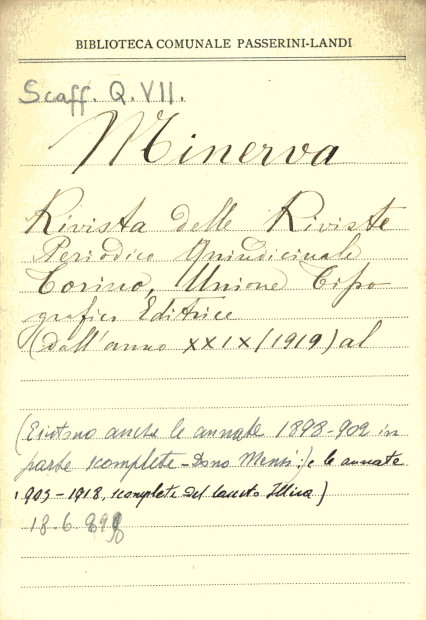 BIBLIOTECA COMUNALE PASSERINI-LANDI
Scaff. Q. VII.
Minerva
Rivista delle Riviste
Periodico Quindicinale
Torino, Unione Tipo
grafico Editrice
(dall'anno XXIX (1919) al
(Esistono anche le annate 1898-902 in
parte scomplete - Dono Mensi:) e le annate
1903-1918, scomplete del lascito
18.6.